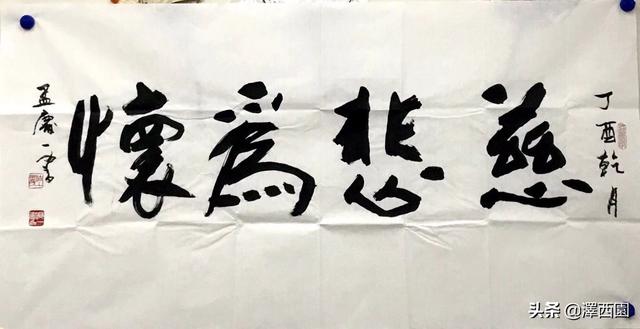 丁酉乾月
慈悲爲懷
孟慶一書
头条 @澤西園